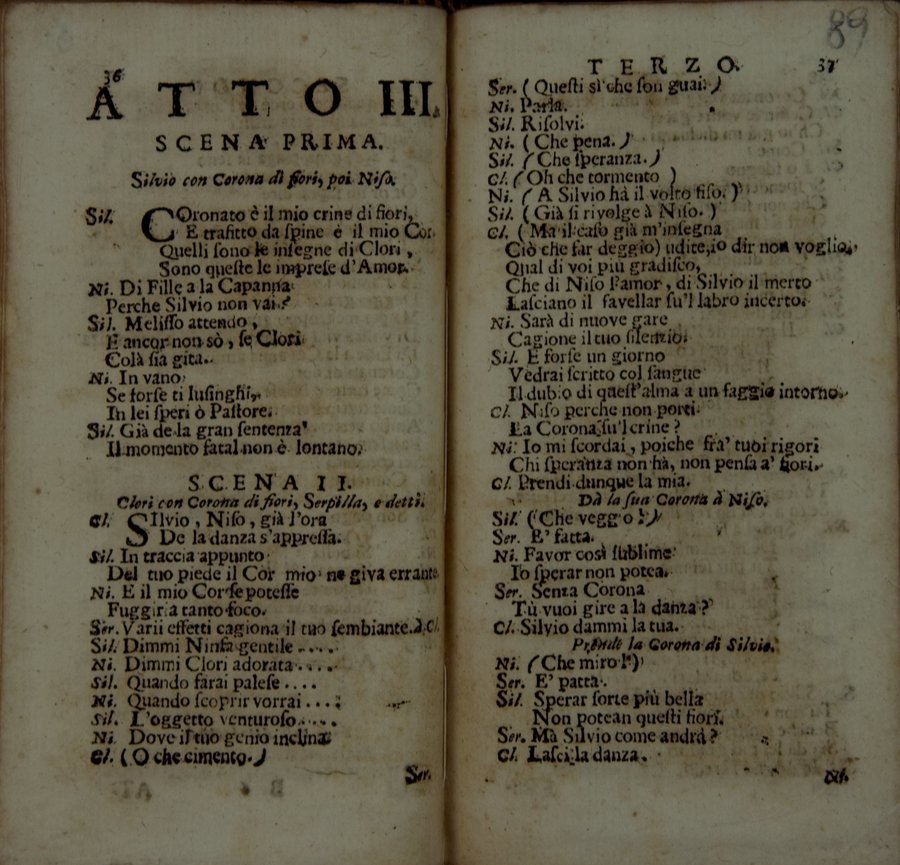 36
ATTO III.
SCENA PRIMA.
Silvio con Corona di fiori, poi Niso.
Sil. COronato è il mio crine di fiori,
E trafitto da spine è il mio Cor
Quelli sono le insegne di Clori,
Sono queste le imprese d'Amor.
Ni. Di Fille a la Capanna
Perche Silvio non vai?
Sil. Melisso attendo,
E ancor non sò, se Clori
Colà sia gita.
Ni. In vano
Se forse ti lusinghi,
In lei speri ò Pastore.
Sil. Già de la gran sentenza
Il momento fatal non è lontano.
SCENA II.
Clori con Corona di fiori, Serpilla, e detti.
Cl. SIlvio, Niso, già l'ora
De la danza s'appressa.
Sil. In traccia appunto
Del tuo piede il Cor mio ne giva errante
Ni. E il mio Cor se potesse
Fuggiria tanto foco.
Ser. Varii effetti cagiona il tuo sembiante. à Cl.
Sil. Dimmi Ninfa gentile ....
Ni. Dimmi Clori adorata ....
Sil. Quando farai palese ....
Ni. Quando scoprir vorrai ....
Sil. L'oggetto venturoso ....
Ni. Dove il tuo genio inclina
Cl. (O che cimento.)
Ser.
89
TERZO. 37
Ser. (Questi sì che son guai.)
Ni. Parla.
Sil. Risolvi.
Ni. (Che pena.)
Sil. (Che speranza.)
Cl. (Oh che tormento)
Ni. (A Silvio hà il volto fiso.)
Sil. (Già si rivolge à Niso.)
Cl. (Ma il caso già m'insegna
Ciò che far deggio) udite, io dir non voglio,
Qual di voi più gradisco,
Che di Niso l'amor, di Silvio il merto
Lasciano il favellar su'l labro incerto.
Ni. Sarà di nuove gare
Cagione il tuo silenzio.
Sil. E forse un giorno
Vedrai scritto col sangue
Il dubio di quest'alma a un faggio intorno.
Cl. Niso perche non porti
La Corona su'l crine?
Ni. Io mi scordai, poiche fra' tuoi rigori
Chi speranza non hà, non pensa a' fiori.
Cl. Prendi dunque la mia.
Dà la sua Corona à Niso.
Sil. (Che veggio!)
Ser. E' fatta.
Ni. Favor così sublime
Io sperar non potea.
Ser. Senza Corona
Tù vuoi gire a la danza?
Cl. Silvio dammi la tua.
Prende la Corona di Silvio.
Ni. (Che miro!)
Ser. E' patta.
Sil. Sperar sorte più bella
Non potean questi fiori.
Ser. Mà Silvio come andrà?
Cl. Lasci la danza.
Ni.